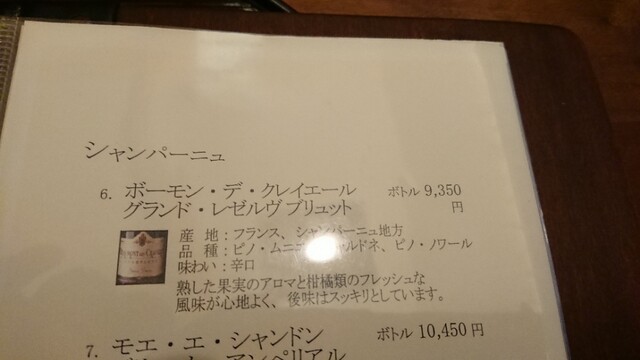 シャンパーニュ
6. ボーモン・デ・クレイエール ボトル 9,350
グランド・レゼルヴ ブリュット 円
産 地：フランス、シャンパーニュ地方
品 種：ピノ・ムニエ ピノ・ノワール
味わい：辛口
熟した果実のアロマと柑橘類のフレッシュな
風味が心地よく、後味はスッキリとしています。
7. モエ・エ・シャンドン ボトル 10,450 円
アンペリアル